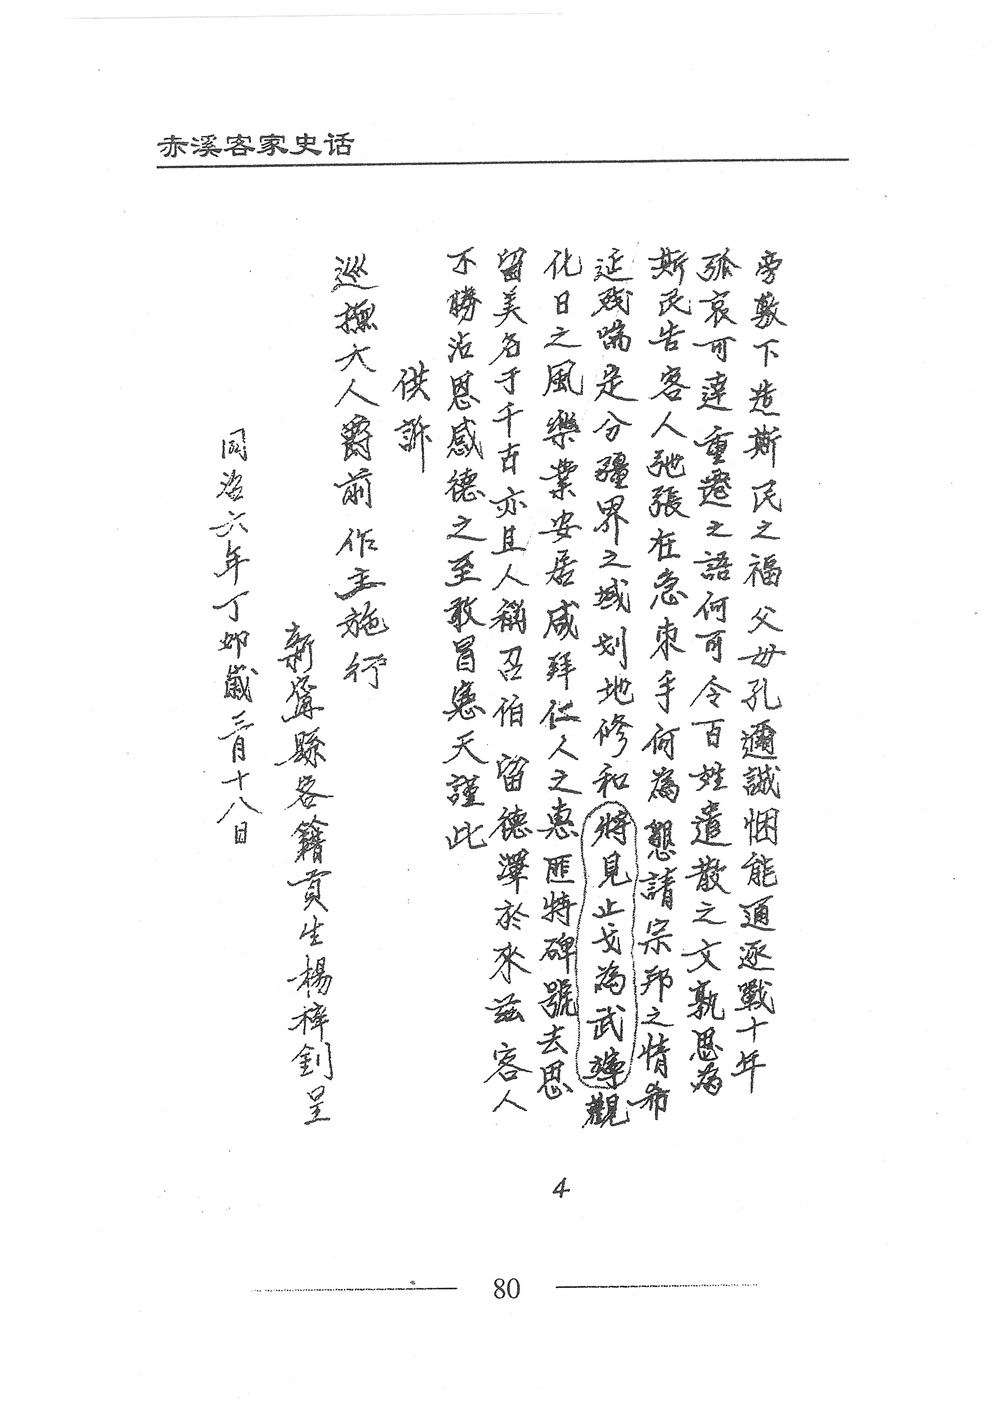 赤溪客家史话
旁敷下造斯民之福父母孔邇誠悃能通逐戰十年
哀可達重遷之語何可令百姓遣散之文孰思為
斯民告客人弛張在急束手何為懇請宗邦之情希
延殘喘是分疆界之域划地修和將見止戈為武觀
化日之風樂業安居咸拜仁人之惠匪特碑號去思
留美名于千古亦且人稱召伯留德澤於來茲客人
不勝沾恩感德之至敢冒憲天謹此
供訴
巡撫大人爵前作主施行
新寧縣客籍貢生楊梓釗呈
同治六年丁卯歲三月十八日
4
80